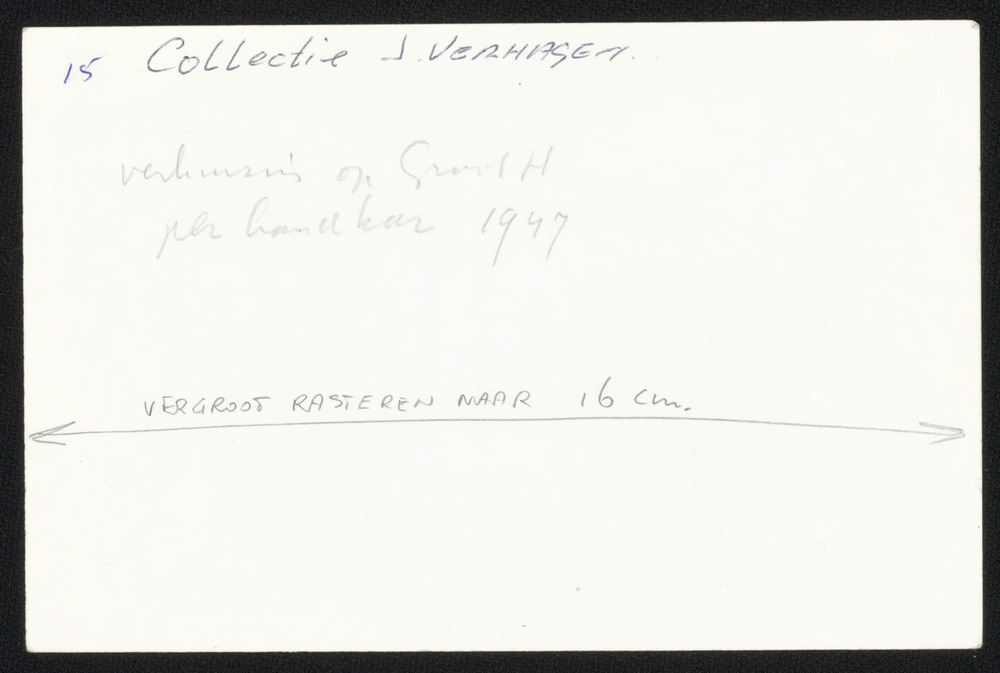 15 Collectie J. VERHAGEN.
op H
per handkar 1947
VERGROOT RASTEREN NAAR 16 cm.